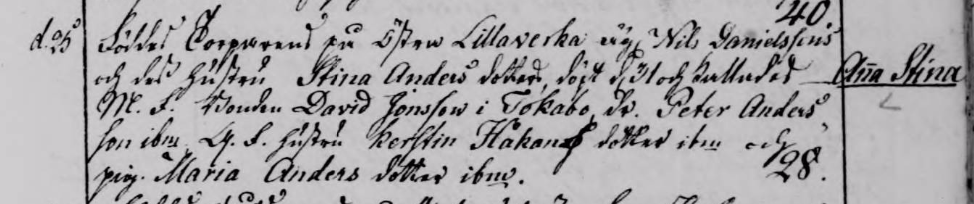 40.
d. 25 Föddes Torparens på Östra Lillaverka äg. Nils Danielssons
och des hustru Stina Anders dotter, döpt d. 31 och kallades Aña Stina
M. F. Bonden David Jonsson i Tokabo, dr. Peter Anders
son ibm. Q. F. hustru Kerstin Håkans dotter ibm och
pig. Maria Anders dotter ibm. 28.